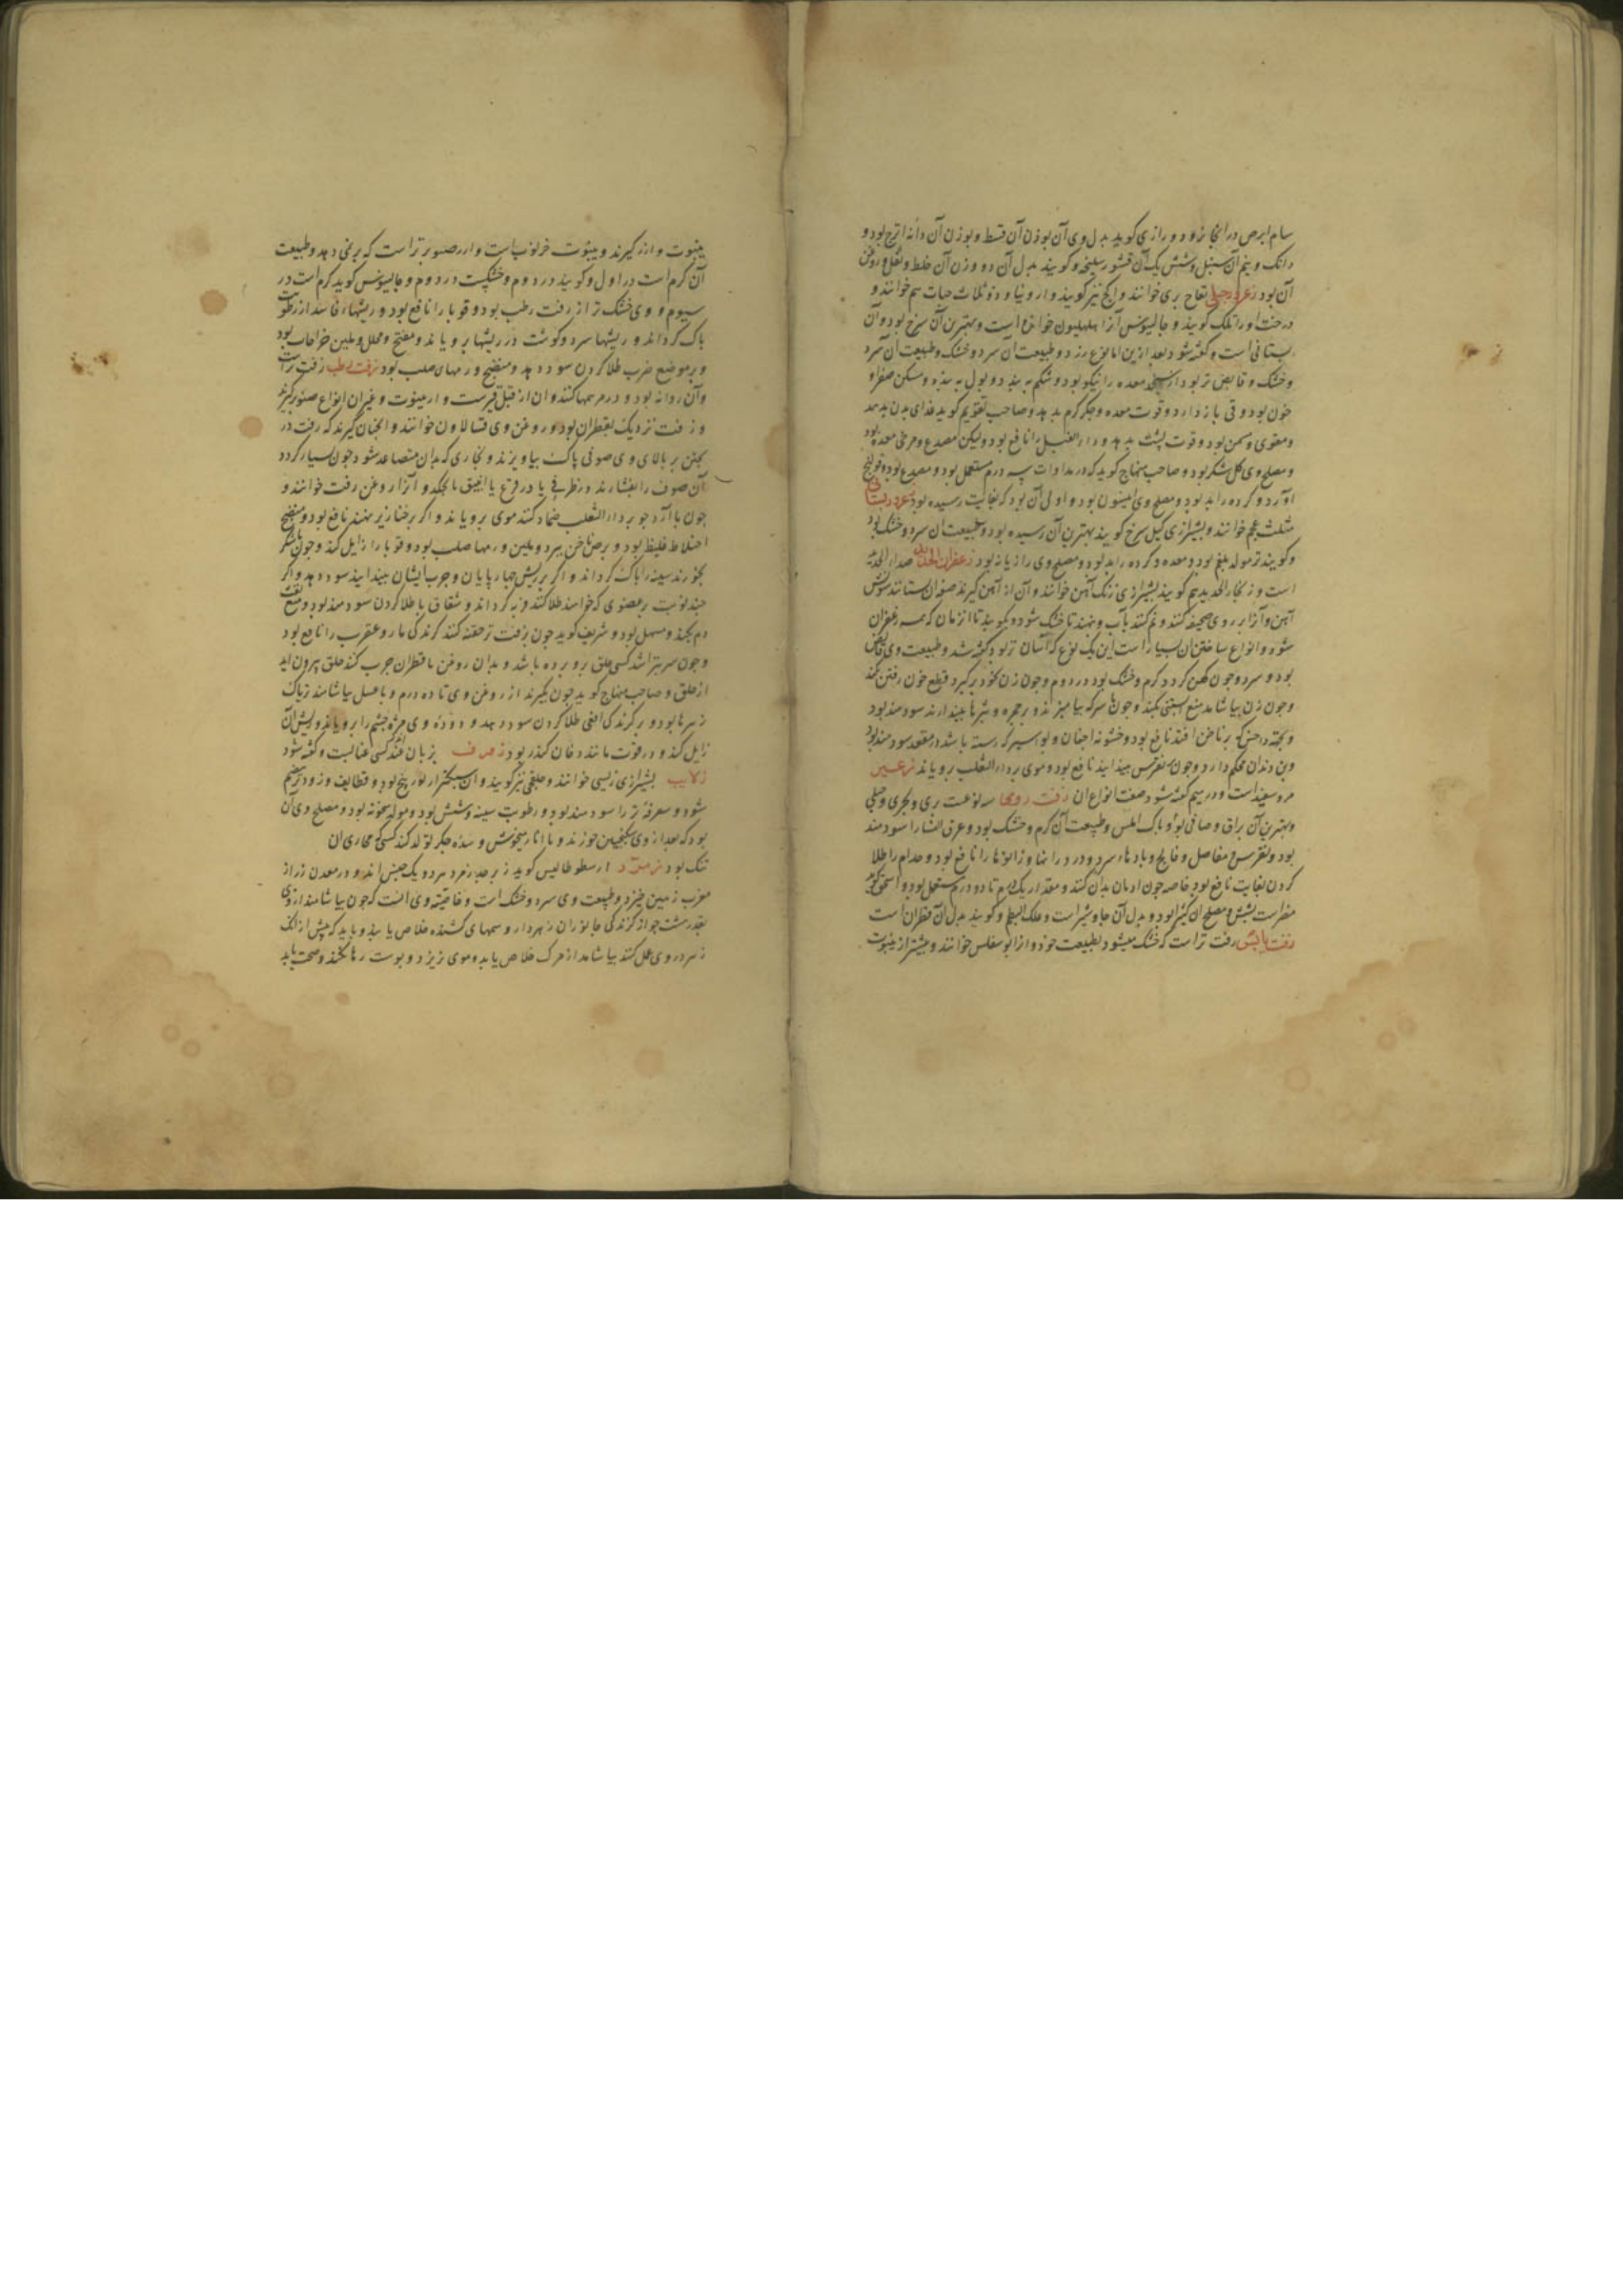 سام ابرص در انجا نرود و رازی کوید بدل وی آن بوزن آن قسط و بوزن آن دانه اترج بود و
دانک و نیم آن سنبل و شش یک آن قشور سلیخه و کویند بدل آن دو وزن آن خلط و ثفل روغن
آن بود زعرور جبلی تفاح بری خوانند و انج نیز کویند و ارونیا و ذو ثلاث حبات هم خوانند و
درخت او را تلک کویند و جالینوس آنرا خوانده است و بهترین آن سرخ بود و آن
بستانی است و کفته شود بعد ازین اما نوع زرد و طبیعت آن سرد و خشک و طبیعت آن سرد
و خشک و قابض تر بود از معده را نیکو بود و شکم به بندد و بول به بندد و مسکن صفرا و
خون بود و قی باز دارد و قوت معده و جکر کرم بدهد و صاحب تقویم کوید غذای بدن بدهد
و مقوی و مسمن بود و قوت پشت بدهد و داء الفیل را نافع بود ولیکن مصدع و مرخی معده بود
و مصلح وی کل شکر بود و صاحب منهاج کوید که در مداوات سه درم مستعمل بود و مصدع بود و قولنج
آورد و کرده را بد بود و مصلح وی انیسون بود و اولی آن بود که بغایت رسیده بود زعرور بستانی
مثلث عجم خوانند و بشیرازی کیل سرخ کویند بهترین آن رسیده بود و طبیعت آن سرد و خشک بود
و کویند تر مولد بلغم بود و معده و کرده را بد بود و مصلح وی رازیانه بود زعفران الحدید صداء الحدید
است و زنجار الحدید هم کویند بشیرازی زنک آهن خوانند و آن از آهن کیرند صفت آن بستانند سونش
آهن و آنرا بر روی صحیفه کنند و نم کنند بآب و بنهند تا خشک شود و بکویند تا آن زمان که همه زعفران
شود و انواع ساختن آن بسیار است این یک نوع که آسان تر بود کفته شد و طبیعت وی قابض
بود و سرد و چون کهن کردد کرم و خشک بود در دوم و چون زن بخود برکیرد قطع خون رفتن بکند
و چون زن بیاشامد منع آبستنی بکند و چون با سرکه بیامیزند و بر جمره و بثرها بیندایند سودمند بود
و بجهة داحس که بر ناخن افتد نافع بود و خشونة اجفان و بواسیر که رسته باشد در مقعد سودمند بود
و بن دندان محکم دارد و چون بر نقرس بیندایند نافع بود و موی بر داء الثعلب برویاند زغبر
مرو سفید است و در میم کفته شود صفت انواع آن زفت رومی سه نوعست بری و بحری و جبلی
و بهترین آن براق و صافی بود و پاک املس و طبیعت آن کرم و خشک بود و عرق النسا را سودمند
بود و نقرس و مفاصل و فالج و بادهاء سرد و درد رانها و زانوها را نافع بود و جذام را طلا
کردن بغایت نافع بود خاصه چون ادمان بدان کنند و مقدار یک درم تا دو درم مستعمل بود و اسحق کوید
مضر است بشش و مصلح آن کثیرا بود و بدل آن جاوشیر است و علک البطم و کویند بدل آن قطران است
زفت یابس زفت تر است که خشک میشود بطبیعت خود و انرا ابو سقلس خوانند و بیشتر از ینبوت
ینبوت و ارز کیرند و ینبوت خرنوب است و ارز صنوبر تر است که بر نمی دهد و طبیعت
آن کرم است در اول و کویند در دوم و خشکیست در دوم و جالینوس کوید کرم است در
سیوم و وی خشک تر از زفت رطب بود و قوبا را نافع بود و ریشهاء فاسد از رطوبت
پاک کرداند و ریشها سرد و کوشت در ریشها برویاند و مفتح و محلل و ملین خراجات بود
و بر موضع ضرب طلا کردن سود دهد و منضج ورمهای صلب بود زفت رطب زفت تر است
و آن روانه بود و در مرهمها کنند و آن از قبل قیرست و از ینبوت و غیر آن انواع صنوبر کیرند
و زفت نزدیک بقطران بود و روغن وی فتالاون خوانند و انچنان کیرند که زفت در
پختن بر بالای وی صوفی پاک بیاویزند و بخاری که بدان متصاعد شود چون بسیار کردد
آن صوف را بفشارند در ظرفی یا در قرع یا انبیق بچکد و آنرا روغن زفت خوانند و
چون با آرد جو بر داء الثعلب ضماد کنند موی برویاند و اکر بر خنازیر نهند نافع بود و منضج
اخلاط غلیظ بود و برص ناخن ببرد و ملین ورمها صلب بود و قوبا را زایل کند و چون با شکر
بخورند سینه را پاک کرداند و اکر بر ریش چهارپایان و جرب ایشان بیندایند سود دهد و اکر
چند نوبت بر عضوی که خواهند طلا کنند فربه کرداند و شقاق پا طلا کردن سودمند بود و منع نفث
دم بکند و مسهل بود و شریف کوید چون بزفت تر حقنه کنند کزندکی مار و عقرب را نافع بود
و چون سر بتراشد کسی علق برو برده باشد و بدان روغن یا قطران چرب کنند علق بیرون آید
از حلق و صاحب منهاج کوید چون بکیرند از روغن وی تا ده درم و با عسل بیاشامند تریاک
زهرها بود و بر کزندکی افعی طلا کردن سود دهد و دوده وی مژه چشم را برویاند و ریش آن
زایل کند و در قوت مانند دخان کندر بود زفیزف بزبان اندلسی عنابست و کفته شود
زلابیه بشیرازی زلیبی خوانند و حلقی نیز کویند و آن سبکتر از لوزینج بود و قطایف و زود هضم
شود و سعرفه تر را سودمند بود و رطوبت سینه و شش بود و مولد سخونه بود و مصلح وی آن
بود که بعد از وی سکنجبین خورند و با انار میخوش و سده جکر تولد کند کسی که مجاری آن
تنک بود زمرد ارسطوطالیس کوید زبرجد و زمرد هر دو یک جنس اند و در معدن زر از
مغرب زمین خیزد و طبیعت وی سرد و خشک است و خاصیت وی انست که چون بیاشامند از وی
بقدر هشت جو از کزندکی جانوران زهردار و سمهای کشنده خلاص یابند و باید که پیش از آنک
زهر در وی عمل کند بیاشامد از مرک خلاص یابد و موی نریزد و پوست رها نکند و صحت یابد